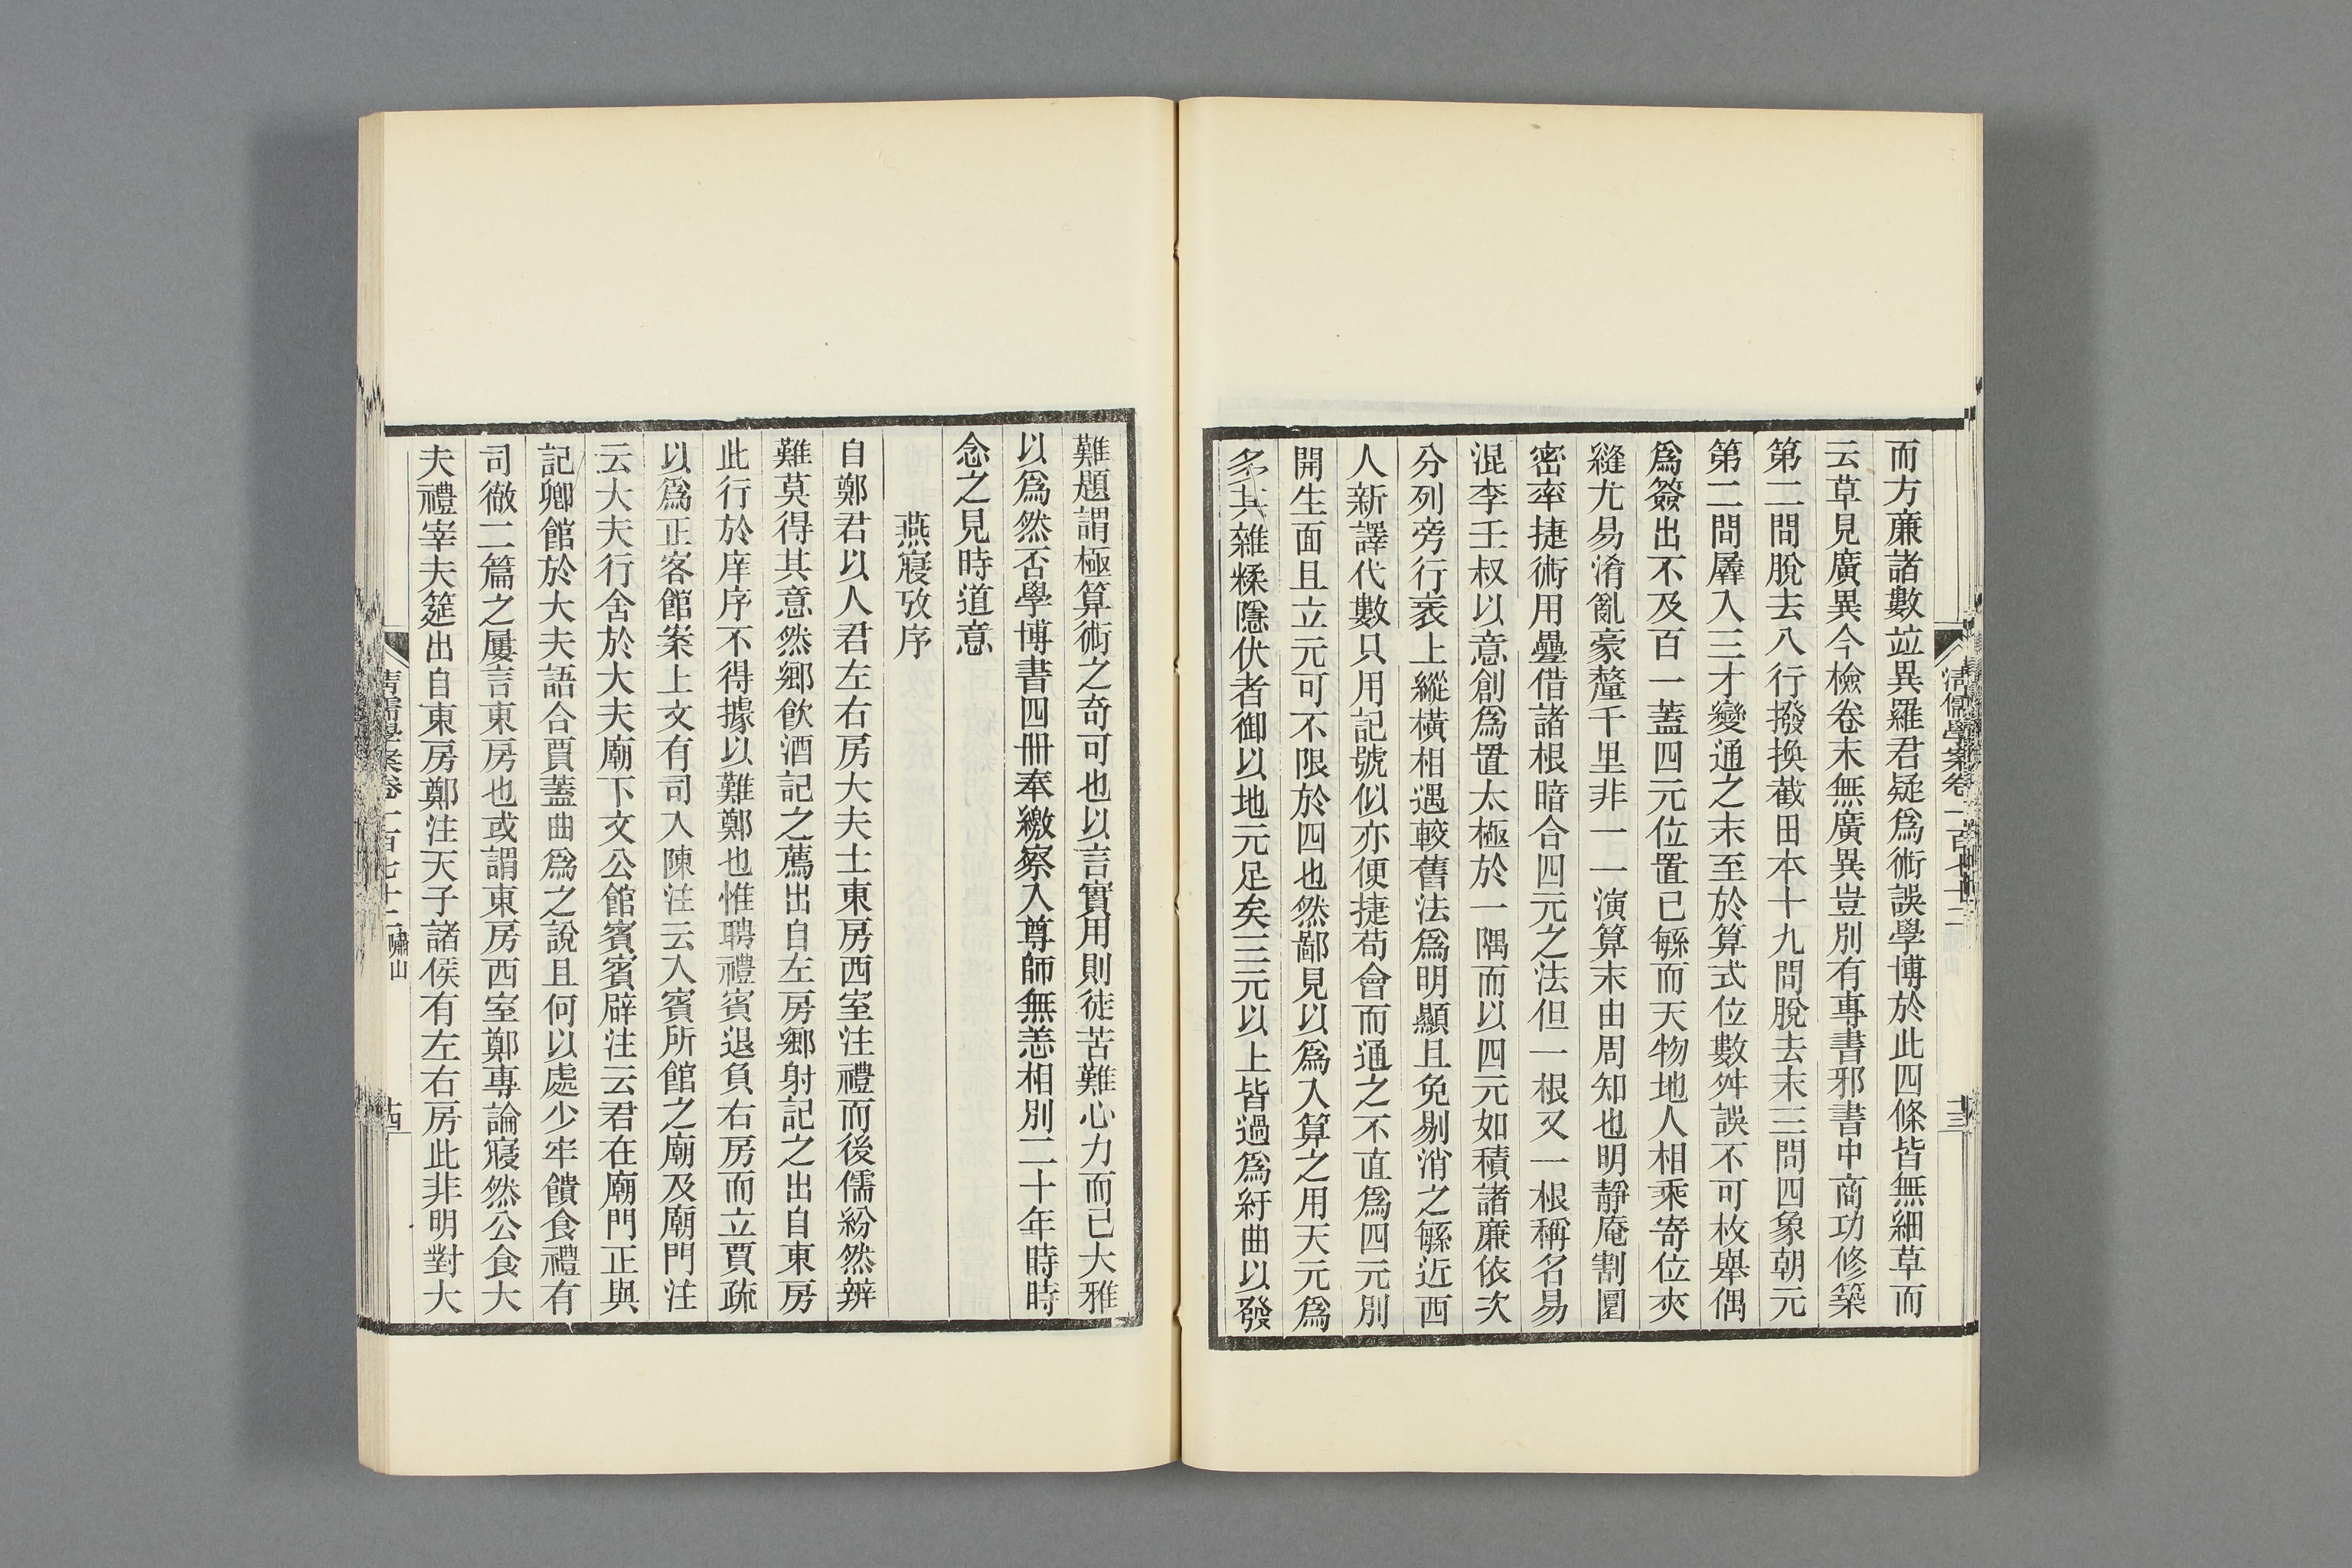 清儒學案卷一百七十二
十三
而方廉諸數竝異羅君疑爲術誤學博於此四條皆無細草而
云草見廣異今檢卷末無廣異豈別有專書邪書中商功修築
第二問脫去八行撥換截田本十九問脫去末三問四象朝元
第二問羼入三才變通之末至於算式位數舛誤不可枚舉偶
爲簽出不及百一蓋四元位置已緐而天物地人相乘寄位夾
縫尤易淆亂豪釐千里非一一演算末由周知也明靜庵割圜
密率捷術用疊借諸根暗合四元之法但一根又一根稱名易
混李壬叔以意創爲置太極於一隅而以四元如積諸廉依次
分列旁行衺上縱橫相遇較舊法爲明顯且免剔消之緐近西
人新譯代數只用記號似亦便捷苟會而通之不直爲四元別
開生面且立元可不限於四也然鄙見以爲入算之用天元爲
多其雜糅隱伏者御以地元足矣三元以上皆過爲紆曲以發
難題謂極算術之奇可也以言實用則徒苦難心力而已大雅
以爲然否學博書四冊奉繳察入尊師無恙相別二十年時時
念之見時道意
燕寢攷序
自鄭君以人君左右房大夫士東房西室注禮而後儒紛然辨
難莫得其意然鄉飮酒記之薦出自左房鄉射記之出自東房
此行於庠序不得據以難鄭也惟聘禮賓退負右房而立賈疏
以爲正客館案上文有司入陳注云入賓所館之廟及廟門注
云大夫行舍於大夫廟下文公館賓賓辟注云君在廟門正與
記卿館於大夫語合賈蓋曲爲之說且何以處少牢饋食禮有
司徹二篇之屢言東房也或謂東房西室鄭專論寢然公食大
夫禮宰夫筵出自東房鄭注天子諸侯有左右房此非明對大
清儒學案卷一百七十二 嘯山
十四